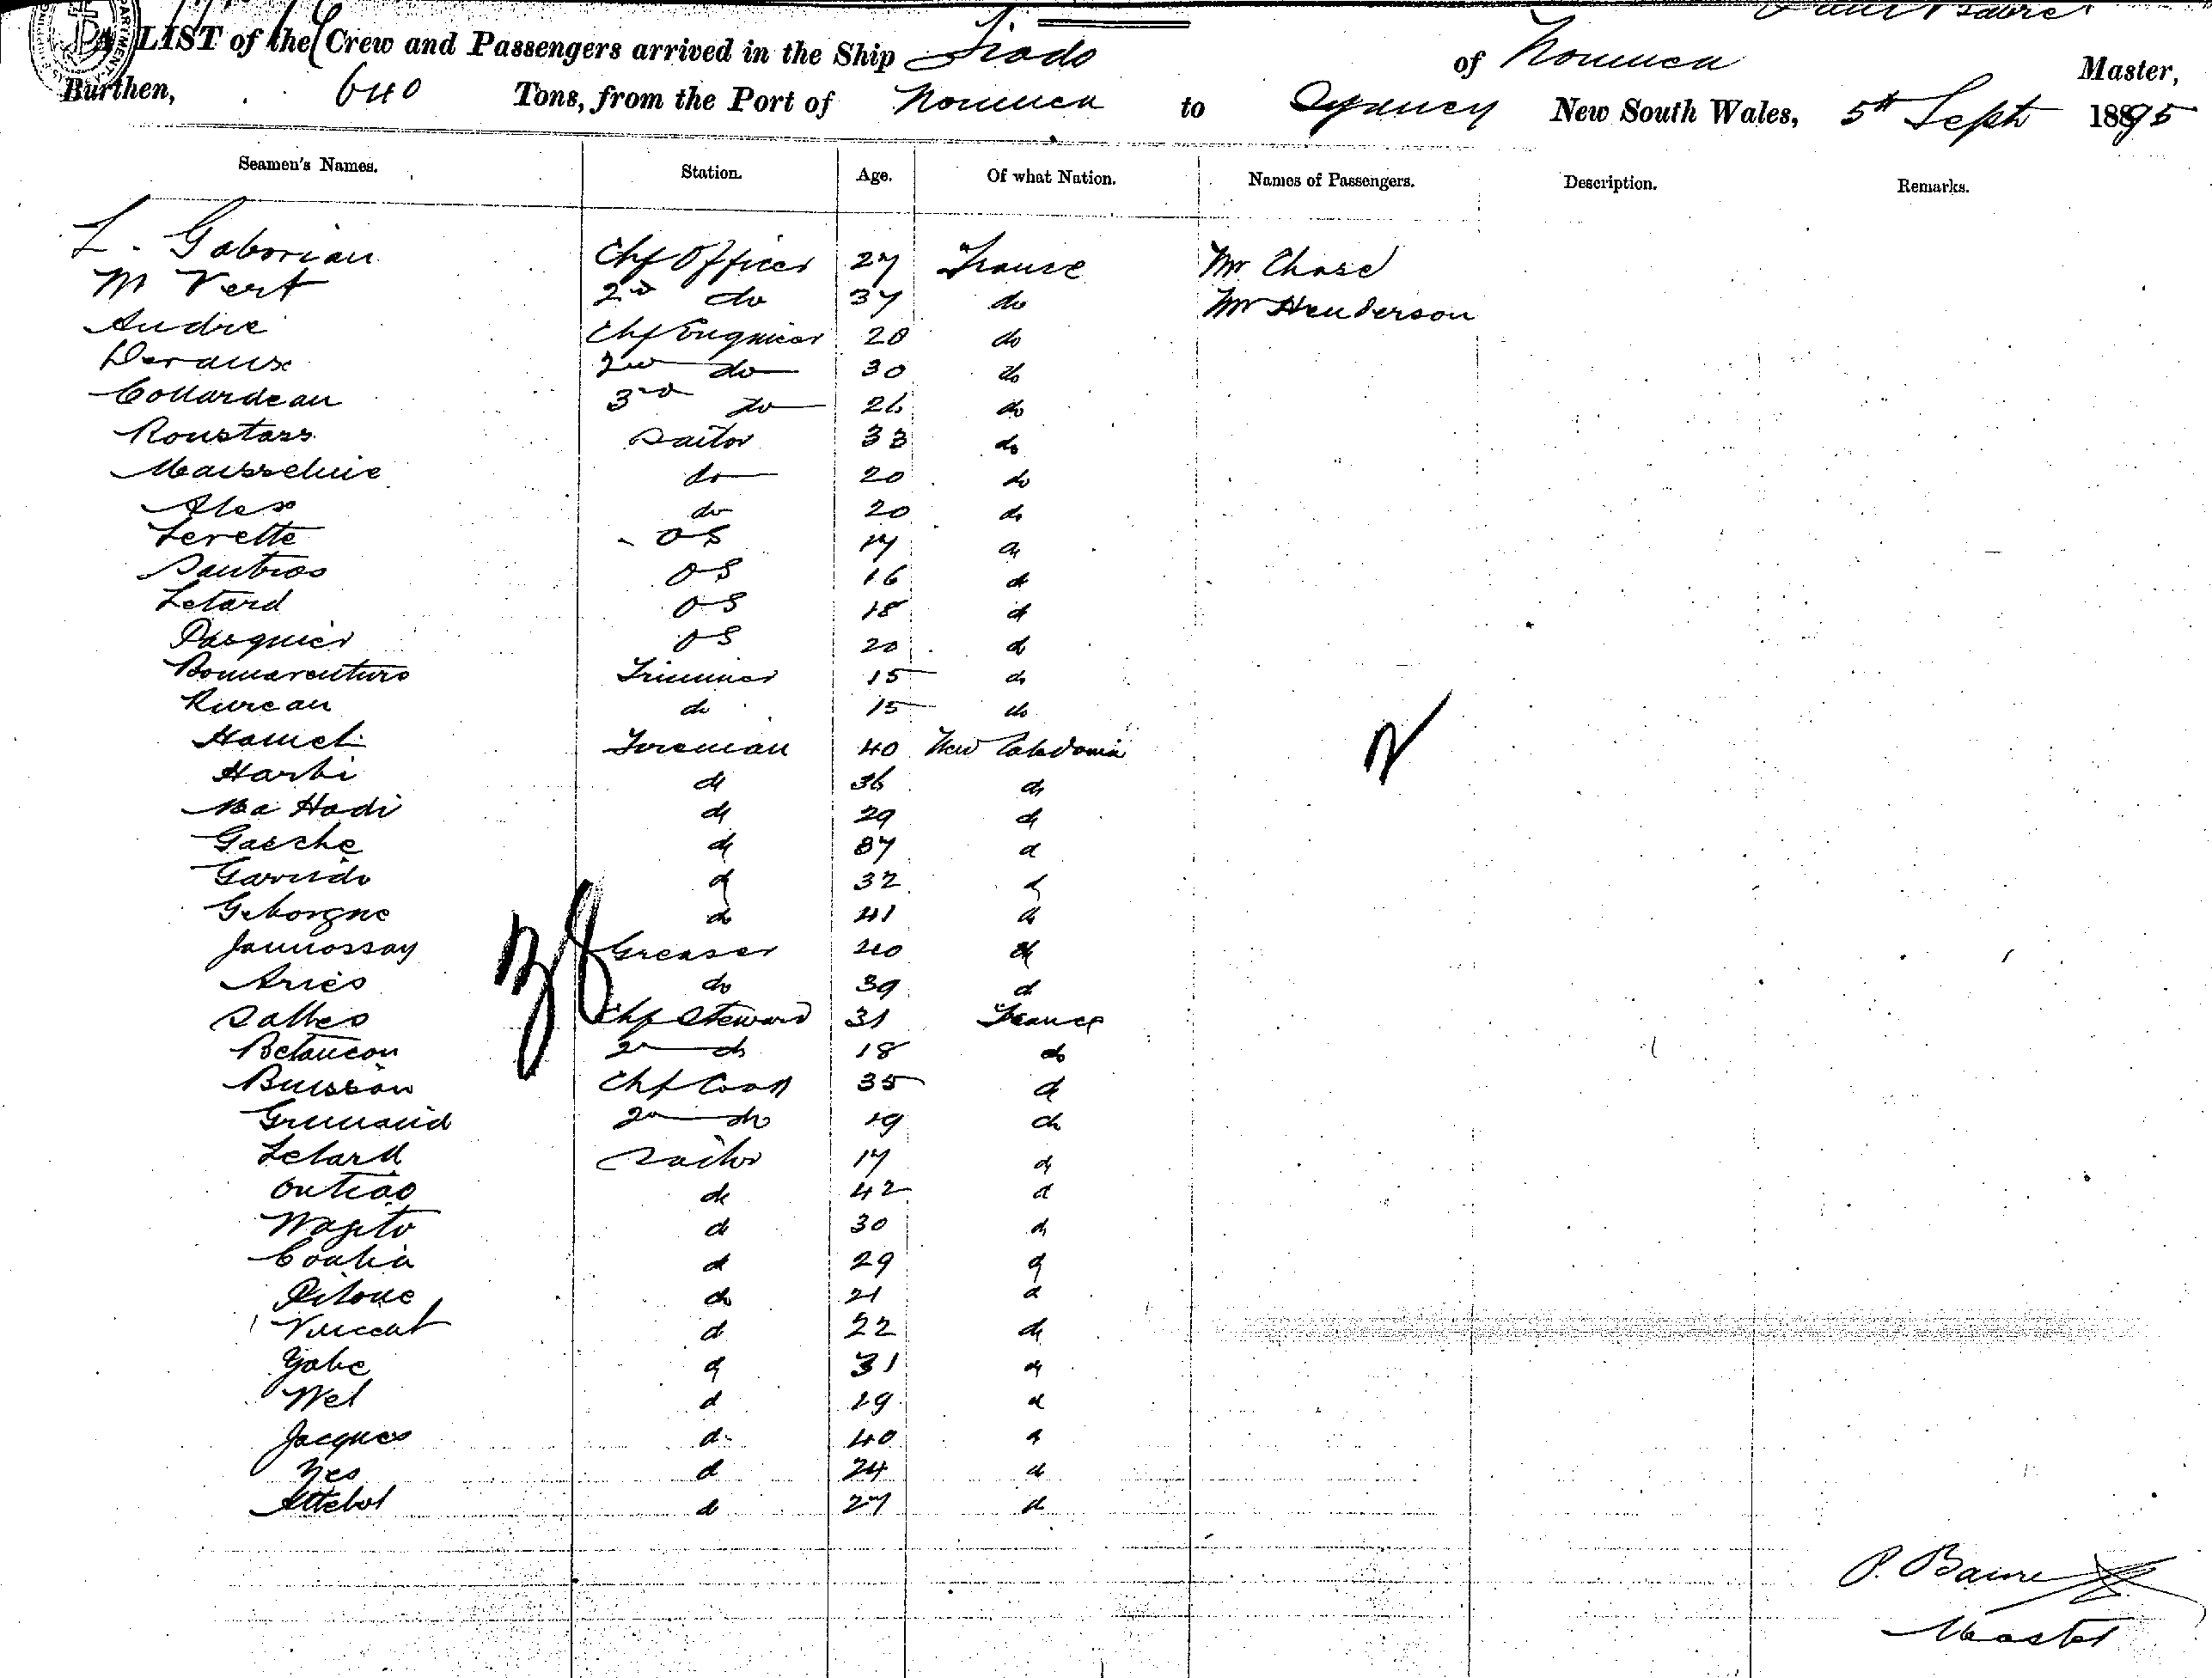 A LIST of the Crew and Passengers arrived in the Ship Tiodo of Noumea Master,
Burthen, 640 Tons, from the Port of Noumea to Sydney New South Wales, 5th Sept 1895
Seamen's Names. Station. Age. Of what Nation. Names of Passengers. Description. Remarks.
L. Gaborian Chf Officer 27 France Mr Chase
M Vert 2nd do 37 do Mr Henderson
Andre Chf Engineer 28 do
Deraux 2nd do 30 do
Collardeau 3rd do 26 do
Roustass Sailor 33 do
do 20 do
Alex do 20 do
Lerette OS 17 do
OS 16 do
Letard OS 18 do
Pasquier OS 20 do
Bonnaventure Trimmer 15 do
Rureau do 15 do
Hamet Foreman 40 New Caledonia
Harbi do 36 do
Ma Hadi do 29 do
Gasche do 37 do
Garrido do 32 do
Geborgne do 41 do
Jannossay Greaser 40 do
Aries do 39 do
Salles Chf Steward 31 France
Betancon 2nd do 18 do
Buisson Chf Cook 35 do
Grumaud 2nd do 19 do
Letard Sailor 17 do
Outiao do 42 do
Wapito do 30 do
Coulia do 29 do
Pitoue do 21 do
Vincent do 22 do
Yabe do 31 do
Wel do 29 do
Jacques do 40 do
Yes do 24 do
Attebol do 27 do
P. Baure
Master